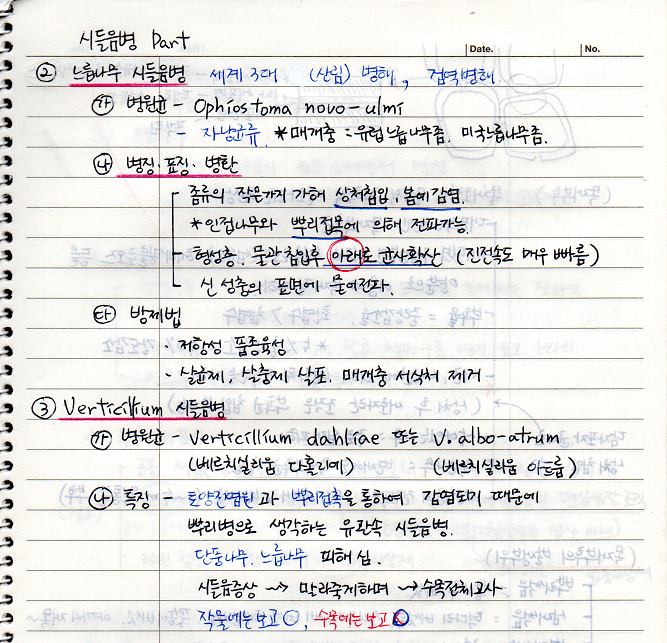 시들음병 Part
Date.
No.
② 느릅나무 시들음병 세계 3대 (산림) 병해, 검역병해
㉮ 병원균 - Ophiostoma novo-ulmi
- 자낭균류. *매개충 = 유럽느릅나무좀. 미국느릅나무좀.
㉯ 병징·표징·병환
좀류의 작은가지 가해 상처침입, 봄에 감염.
*인접나무와 뿌리접목에 의해 전파가능.
- 형성층, 물관 침입후 아래로 균사확산 (진전속도 매우 빠름)
신성충의 표면에 묻어전파.
㉰ 방제법
- 저항성 품종육성
- 살균제, 살충제 살포. 매개충 서식처 제거
③ Verticillium 시들음병
㉮ 병원균 - Verticillium dahliae 또는 V. albo-atrum
(베르치실리움 다홀리에) (베르치실리움 아트룸)
㉯ 특징 - 토양전염원과 뿌리접촉을 통하여 감염되기 때문에
뿌리병으로 생각하는 유관속 시들음병.
단풍나무, 느릅나무 피해 심.
시들음증상 ⇝ 말라죽게하며 ⇝ 수목전체고사
작물에는 보고 O, 수목에는 보고